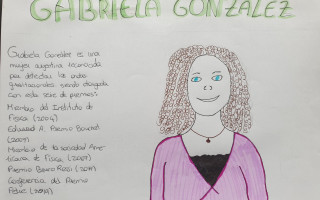 GABRIELA GONZÁLEZ
Gabriela González es una
mujer argentina reconocida
por detectar las ondas
gravitacionales siendo otorgada
con esta serie de premios:
Miembro del Instituto de
Física (2004)
Edward A. Premio Bouchet
(2007)
Miembro de la sociedad Ame-
ricana de Física (2007)
Premio Bruno Rossi (2017)
Conferencia del Premio